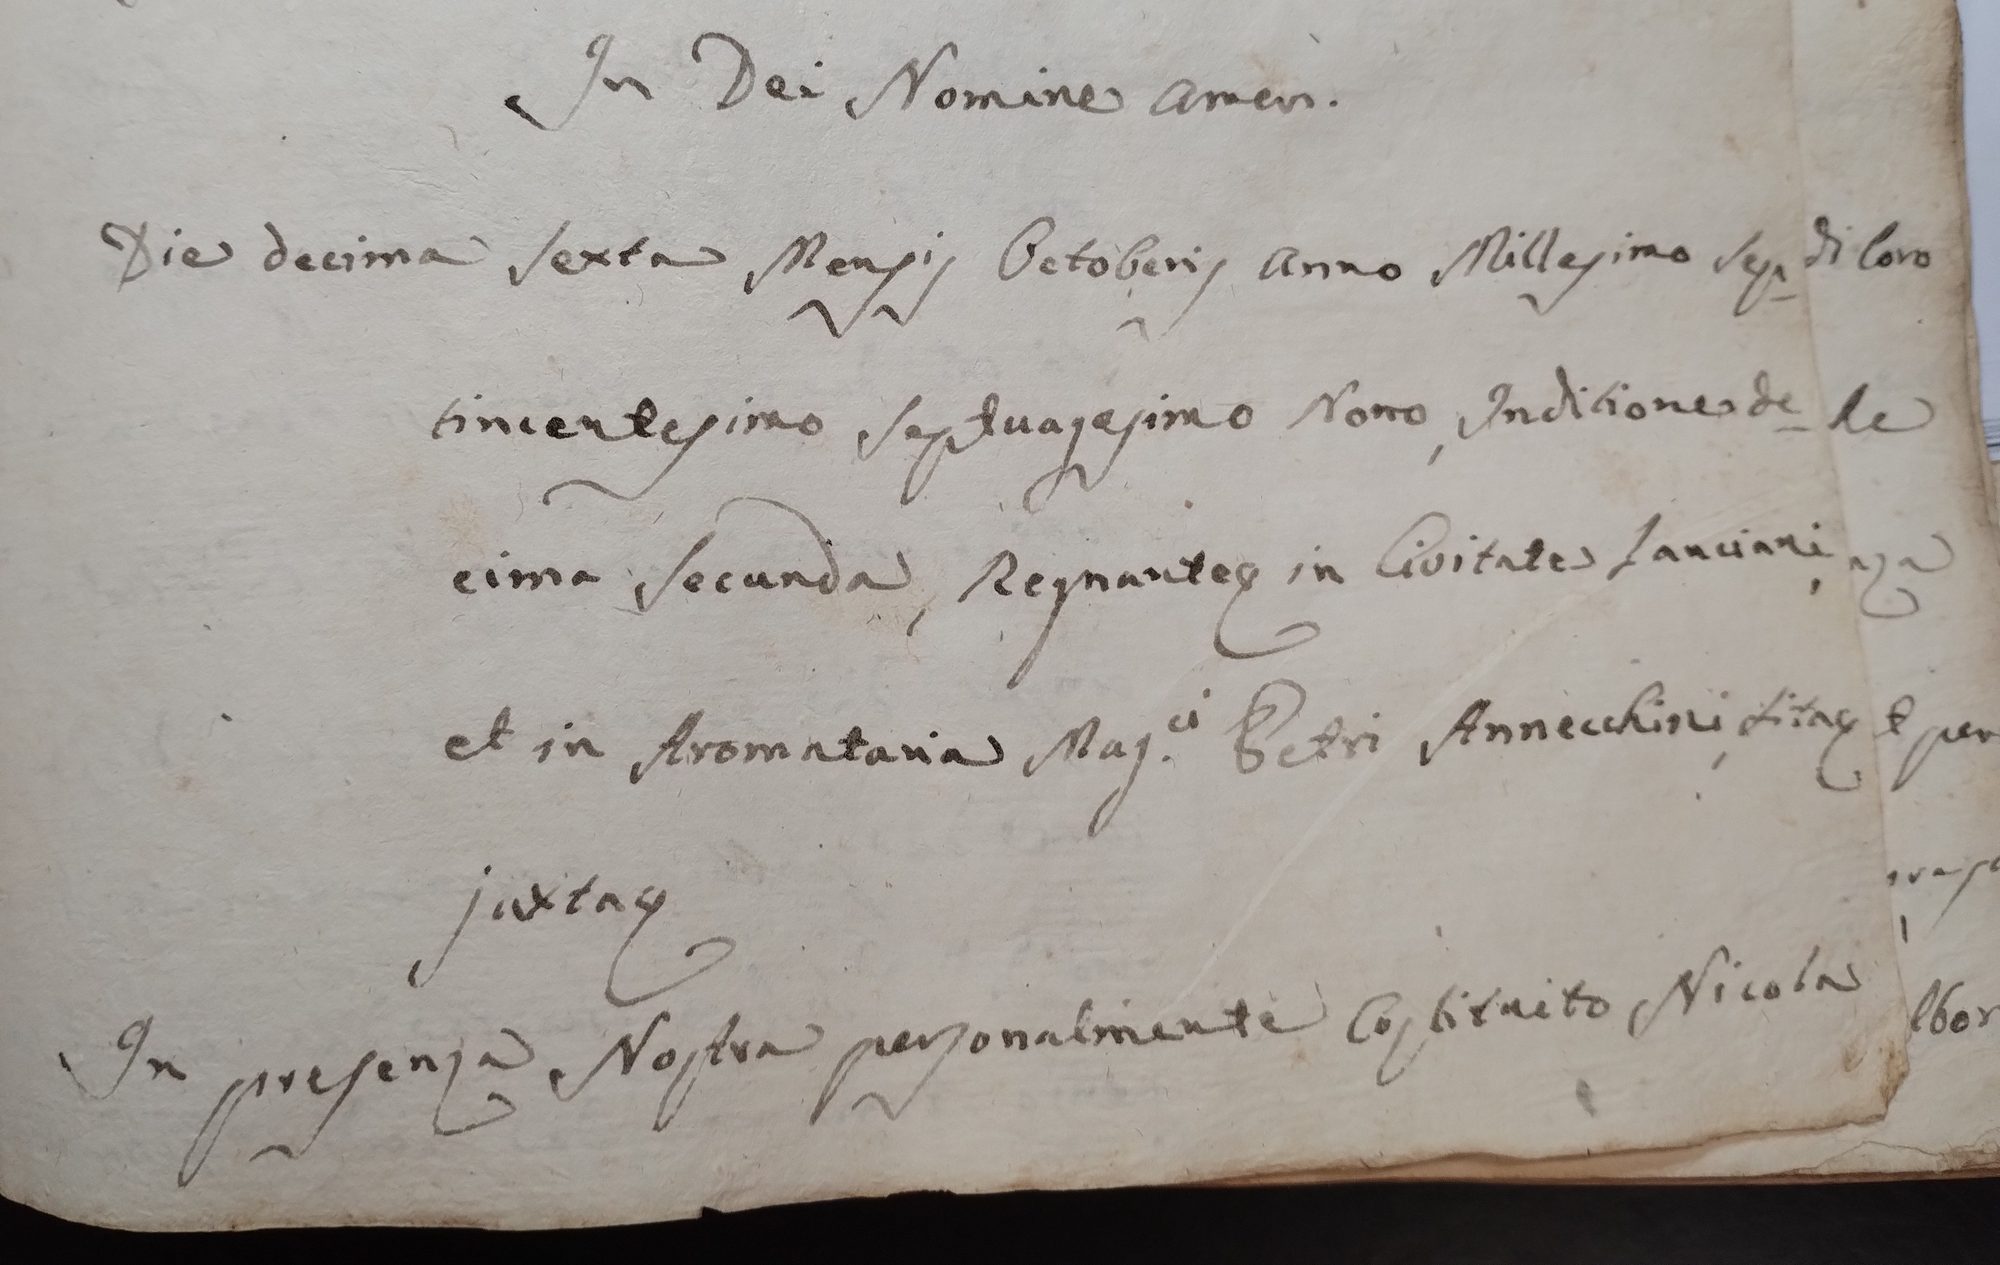 In Dei Nomine Amen.
Die decima sexta Mensis Octobris Anno Millesimo sep-
tincentesimo septuagesimo Nono, Inditione de-
cima secunda, Regnanteq in Civitate Lanciani,
et in Aromataria Mag.ci Petri Annecchini, sitaq
juxtaq
In presenza Nostra personalmente Costituito Nicola
di loro
le
per